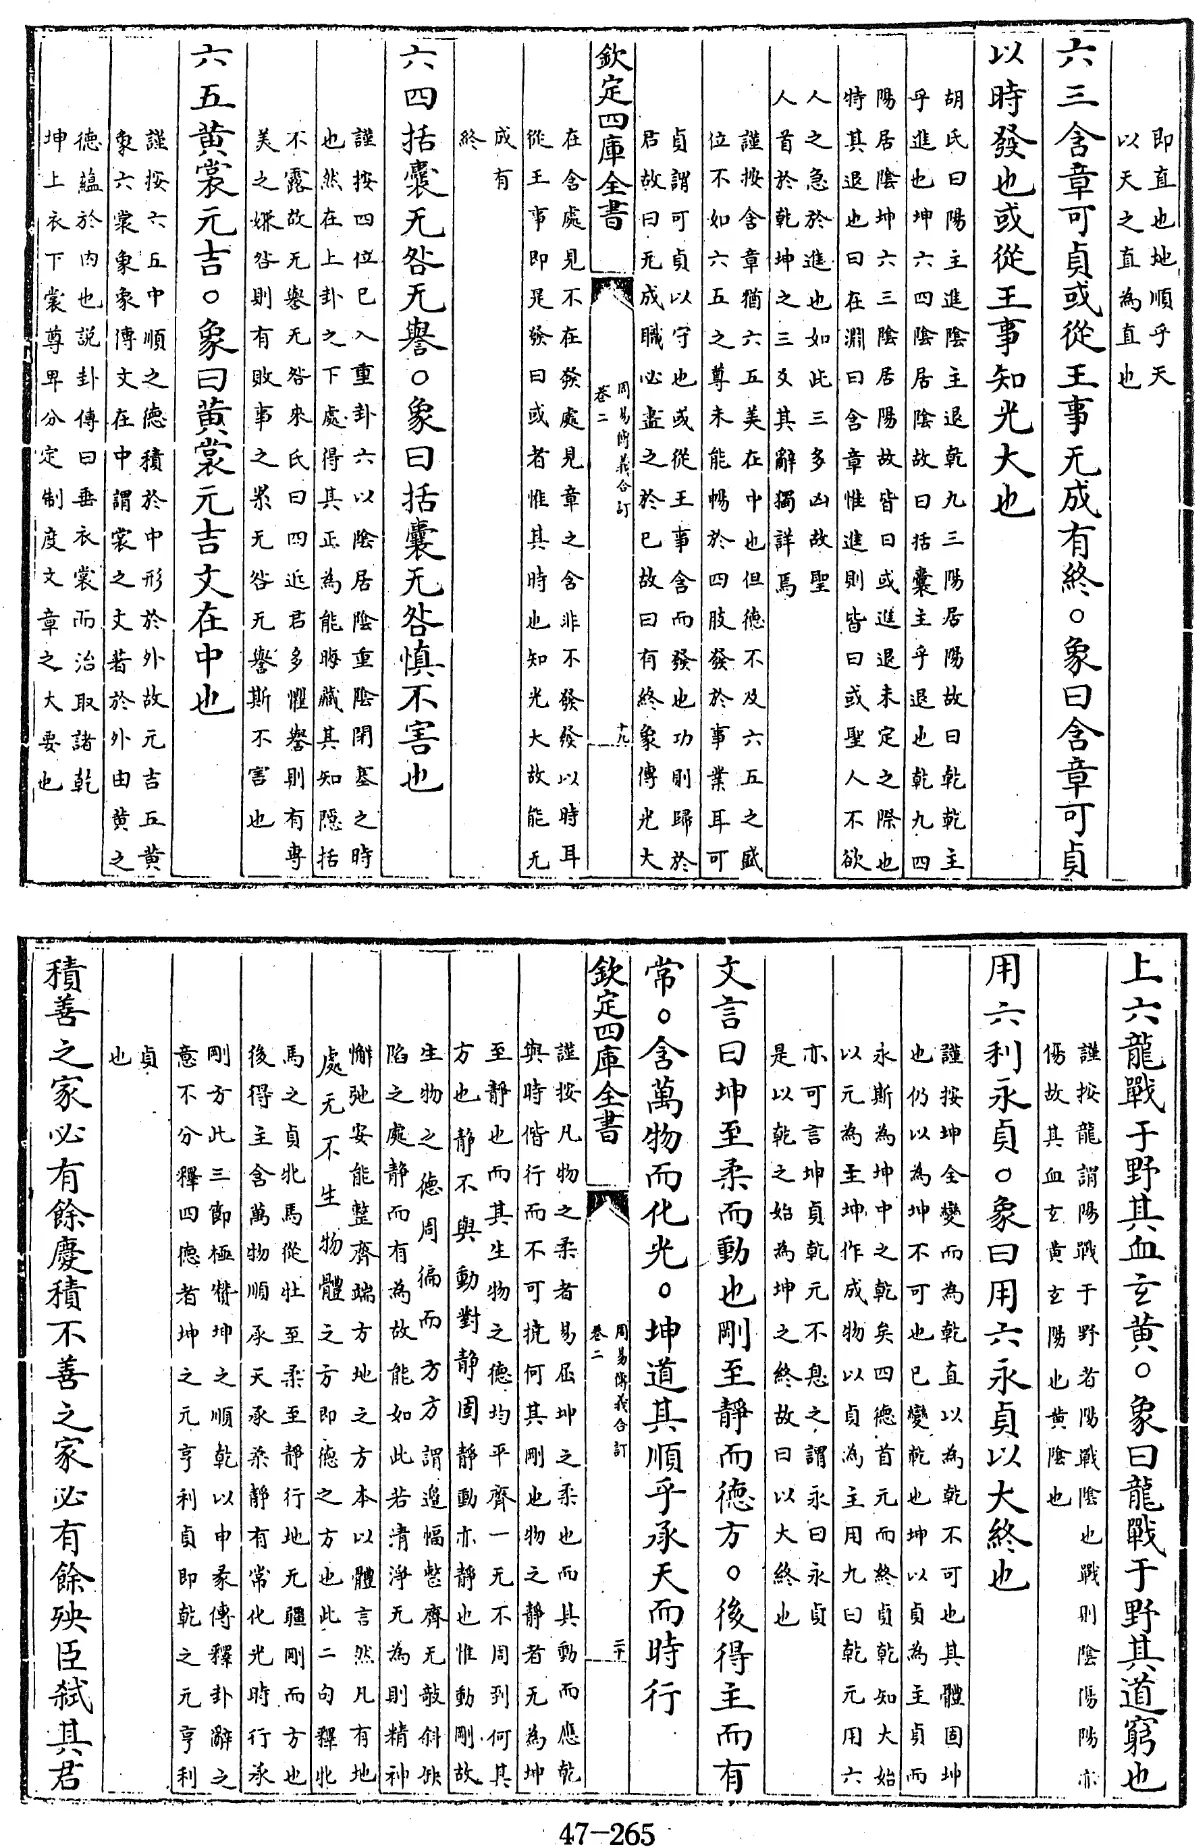 即直也地順乎天
以天之直為直也
六三含章可貞或從王事无成有終。象曰含章可貞
以時發也或從王事知光大也
胡氏曰陽主進陰主退乾九三陽居陽故曰乾乾主
乎進也坤六四陰居陰故曰括囊主乎退也乾九四
陽居陰坤六三陰居陽故皆曰或進退未定之際也
特其退也曰在淵曰含章惟進則皆曰或聖人不欲
人之急於進也如此三多凶故聖
人首於乾坤之三爻其辭獨詳焉
謹按含章猶六五美在中也但德不及六五之盛
位不如六五之尊未能暢於四肢發於事業耳可
貞謂可貞以守也或從王事含而發也功則歸於
君故曰无成職必盡之於已故曰有終象傳光大
欽定四庫全書
周易傳義合訂
卷二
十九
在含處見不在發處見章之含非不發發以時耳
從王事即是發曰或者惟其時也知光大故能无
成有
終
六四括囊无咎无譽。象曰括囊无咎慎不害也
謹按四位已入重卦六以陰居陰重陰閉塞之時
也然在上卦之下處得其正為能晦藏其知隱括
不露故无譽无咎來氏曰四近君多懼譽則有專
美之嫌咎則有敗事之累无咎无譽斯不害也
六五黃裳元吉。象曰黃裳元吉文在中也
謹按六五中順之德積於中形於外故元吉五黃
象六裳象傳文在中謂裳之文著於外由黃之
德蘊於內也說卦傳曰垂衣裳而治取諸乾
坤上衣下裳尊卑分定制度文章之大要也
上六龍戰于野其血玄黃。象曰龍戰于野其道窮也
謹按龍謂陽戰于野者陽戰陰也戰則陰傷陽亦
傷故其血玄黃玄陽也黃陰也
用六利永貞。象曰用六永貞以大終也
謹按坤全變而為乾直以為乾不可也其體固坤
也仍以為坤不可也已變乾也坤以貞為主貞而
永斯為坤中之乾矣四德首元而終貞乾知大始
以元為主坤作成物以貞為主用九曰乾元用六
亦可言坤貞乾元不息之謂永曰永貞
是以乾之始為坤之終故曰以大終也
文言曰坤至柔而動也剛至靜而德方。後得主而有
常。含萬物而化光。坤道其順乎承天而時行
欽定四庫全書
周易傳義合訂
卷二
二十
謹按凡物之柔者易屈坤之柔也而其動而應乾
與時偕行而不可撓何其剛也物之靜者无為坤
至靜也而其生物之德均平齊一无不周到何其
方也靜不與動對靜固靜動亦靜也惟動剛故
生物之德周徧而方方謂邊幅整齊无敧斜缺
陷之處靜而有為故能如此若清淨无為則精神
懈弛安能整齊端方地之方本以體言然凡有地
處无不生物體之方即德之方也此二句釋牝
馬之貞牝馬從牡至柔至靜行地无疆剛而方也
後得主含萬物順承天承柔靜有常化光時行承
剛方此三節極贊坤之順乾以申彖傳釋卦辭之
意不分釋四德者坤之元亨利貞即乾之元亨利
貞
也
積善之家必有餘慶積不善之家必有餘殃臣弒其君
47-265